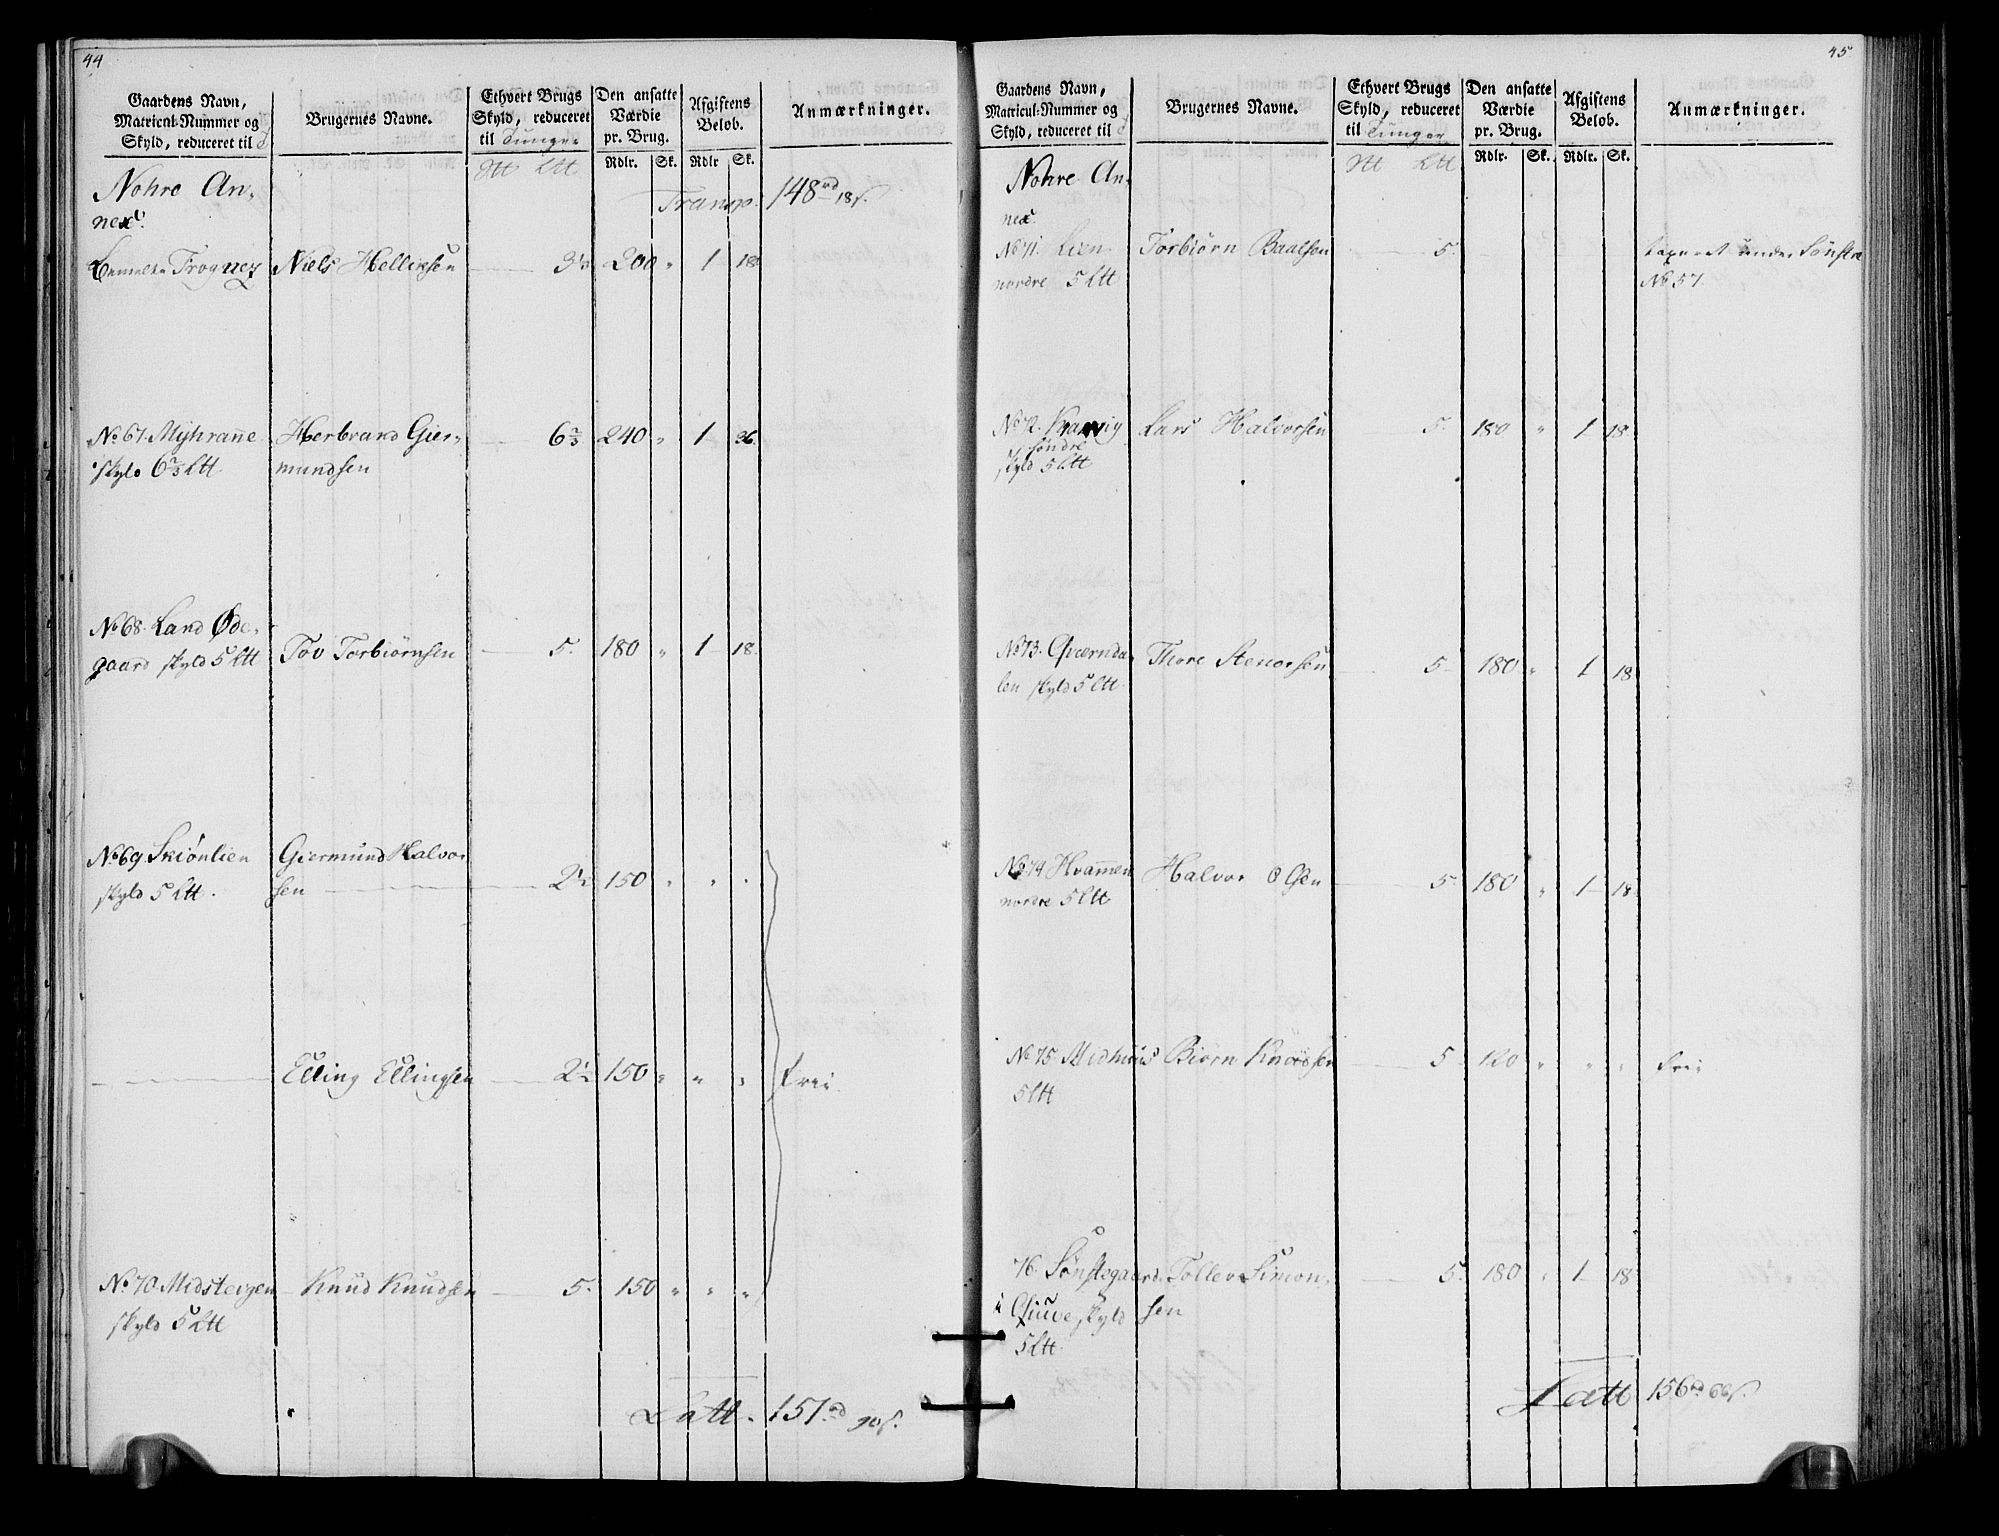 44
Gaardens Navn,
Matricul-Nummer og
Skyld, reduceret til
Brugernes Navne.
Ethvert Brugs
Skyld, reduceret
til Tunger
Den ansatte
Værdie
pr. Brug.
Rdlr. Sk.
Afgiftens
Beløb.
Rdlr Sk.
Anmærkninger.
Nohre An-
nex.
Transp. 148 rd 18 s.
Frogney Niels Hellicksen 3 1/2 200 " 1 18
No 67. Myhrane Herbrand Gier-
skyld 6 2/3 Ltt mundsen 6 2/3 240 " 1 36
No 68. Land Øde-
gaard skyld 5 Ltt Tov Torbiørnsen 5. 180 " 1 18.
No 69 Skiønlien Giermund Halvor
skyld 5 Ltt. sen 2 1/2 150 " " "
Elling Ellingsen 2 1/2 150 " " " Frii.
No 70 Midstevgen Knud Knudsen 5. 150 " " "
skyld 5 Ltt
Latt. 151 rd 90 s.
45
Gaardens Navn,
Matricul-Nummer og
Skyld, reduceret til
Brugernes Navne.
Ethvert Brugs
Skyld, reduceret
til Tunger
Den ansatte
Værdie
pr. Brug.
Rdlr. Sk.
Afgiftens
Beløb.
Rdlr. Sk.
Anmærkninger.
Nohre An-
nex.
No 71. Lien Torbiørn Baalsen 5. taxeret under Sønstre
nordre 5 Ltt No 57
No 72. Lars Halvorsen 5. 180 " 1 18
søndre
skyld 5 Ltt
No 73. Qværnda- Thore Stenersen 5 180 " 1 18
len skyld 5 Ltt
No 74 Hvammen Halvor Olsen 5. 180 " 1 18
nordre 5 Ltt
No 75. Midhuus Biørn Knudsen 5 120 " " " Fri
5 Ltt
76. Sønstegaard Tollev Simon- 5. 180 " 1 18
i skyld sen
5 Ltt
Latt 156 rd 66 s.